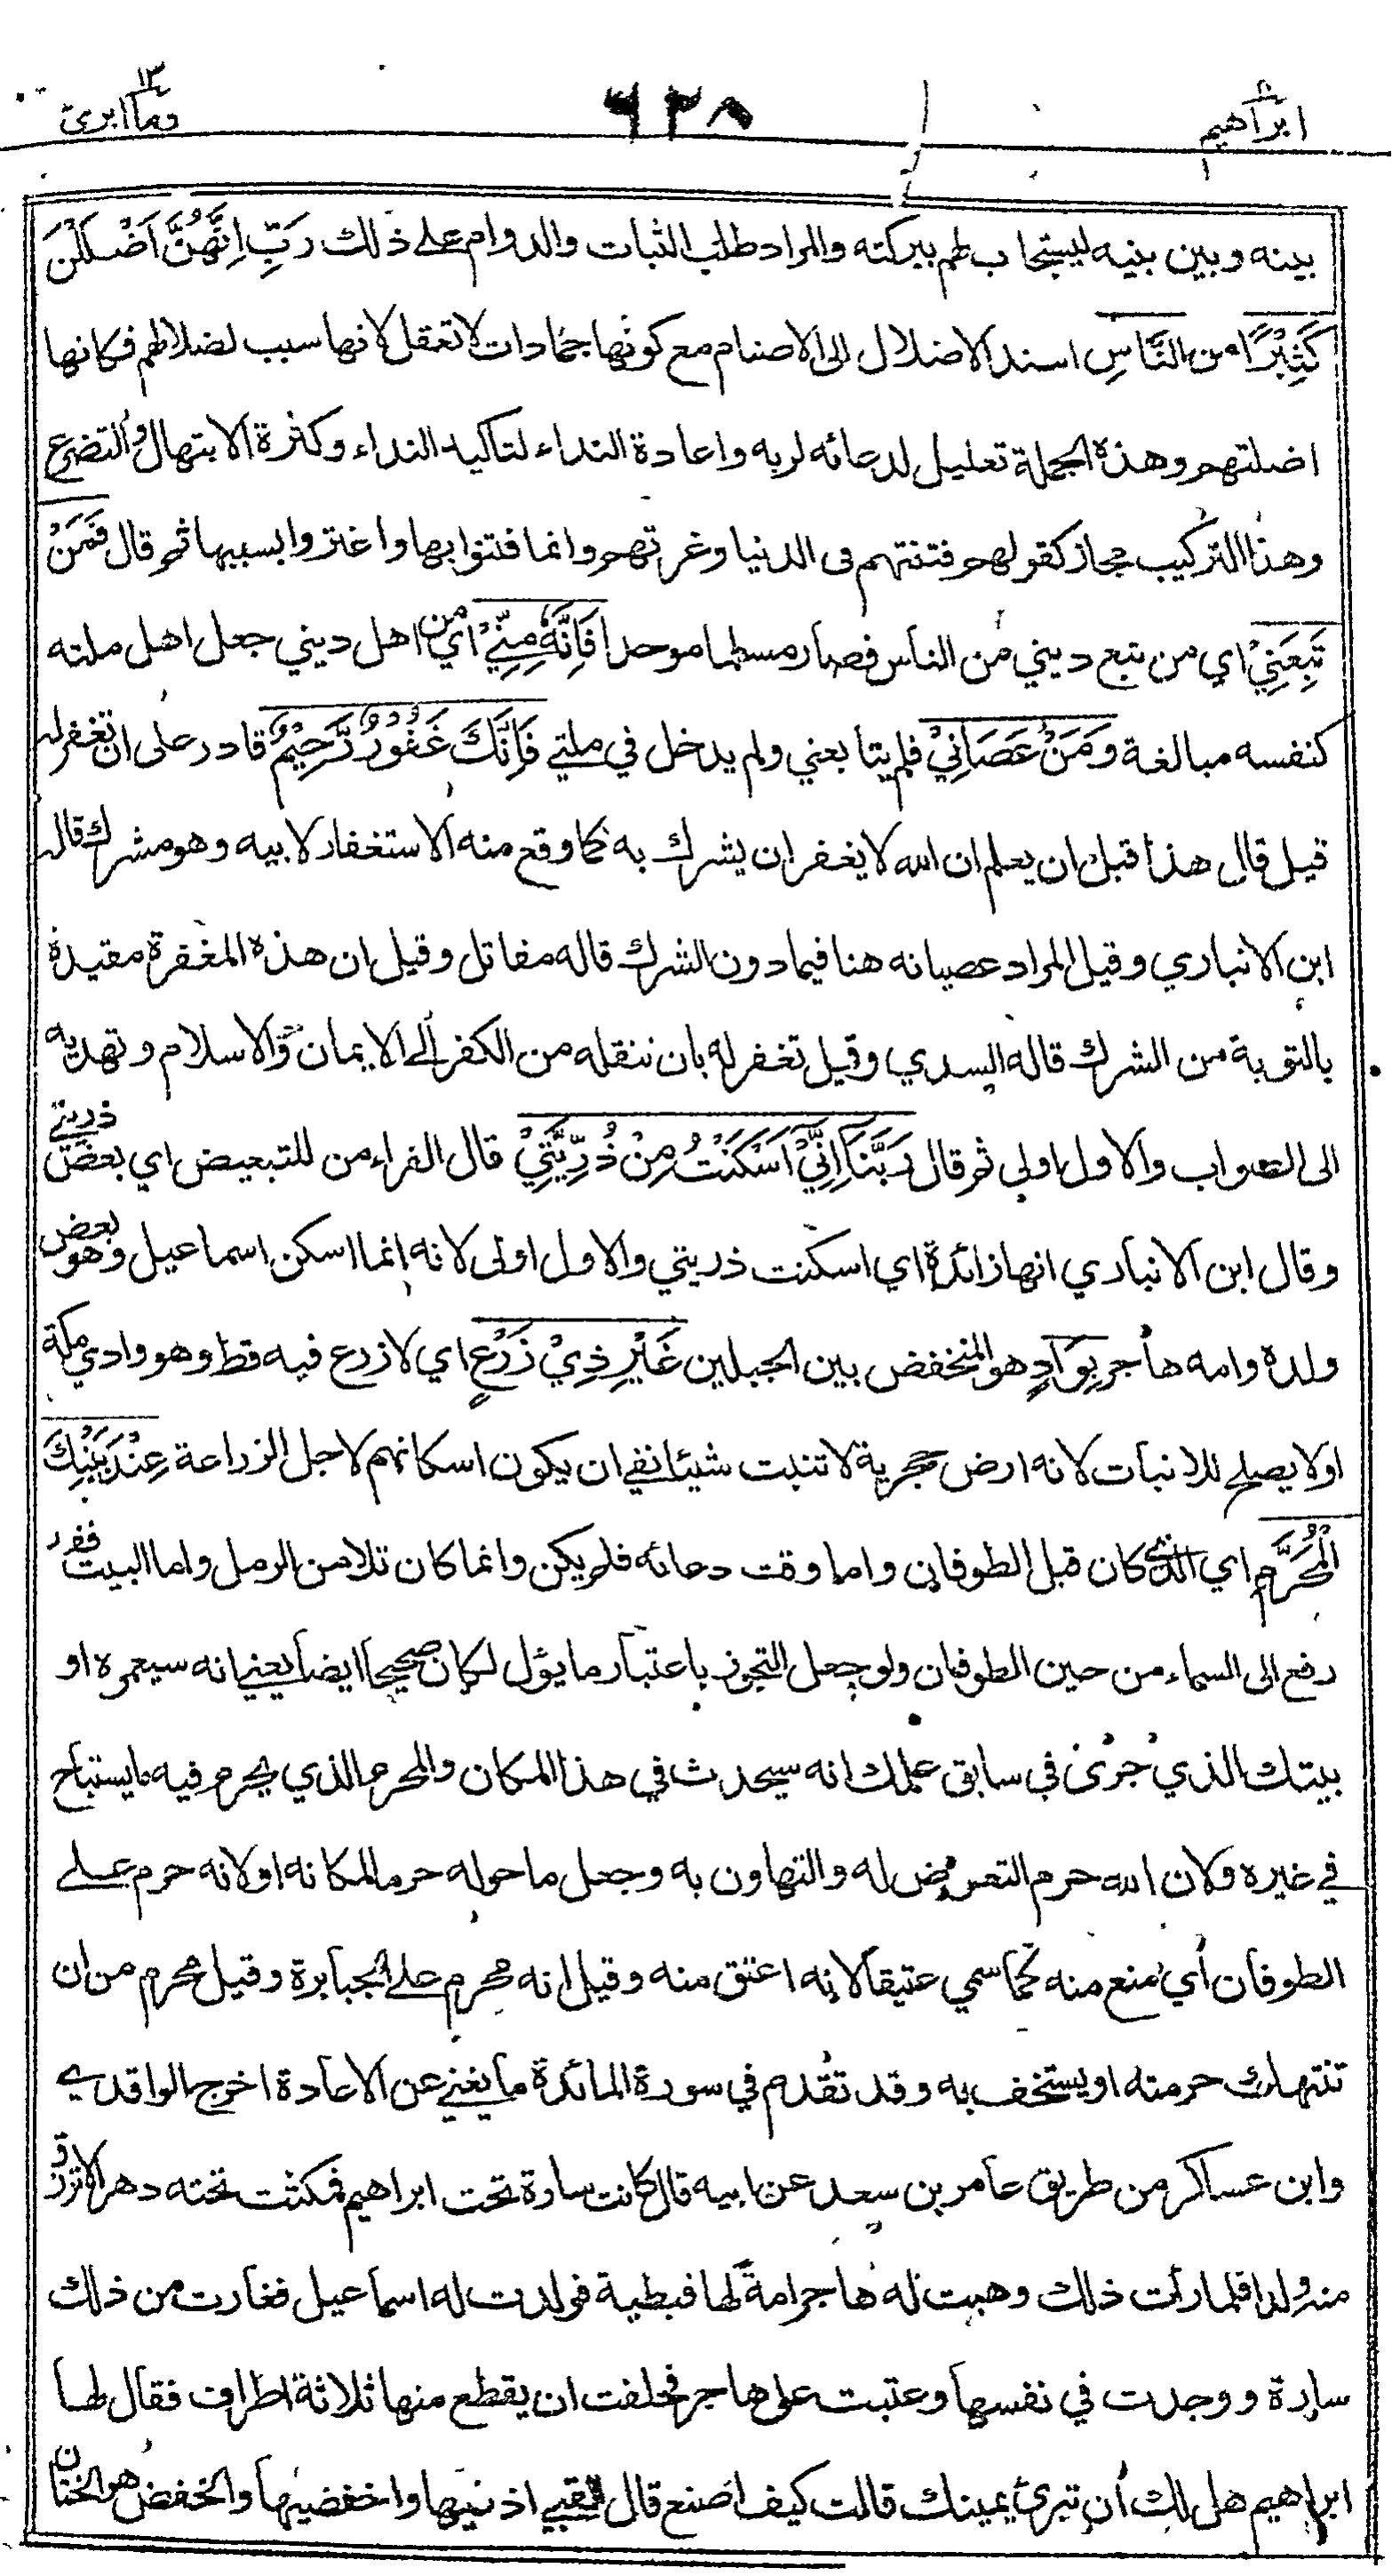 ابراهيم ٦٢٨ وما ابرئ ١٣
بينه وبين بنيه ليستجاب لهم ببركته والمراد طلب الثبات والدوام على ذلك رَبِّ اِنَّهُنَّ اَضْلَلْنَ
كَثِيْرًا من النَّاسِ اسند الاضلال الى الاصنام مع كونها جمادات لا تعقل لانها سبب لضلالهم فكانها
اضلتهم وهذه الجملة تعليل لدعائه لربه واعادة النداء لتاكيد النداء وكثرة الابتهال والتضرع
وهذا التركيب مجاز كقولهم فتنتهم فى الدنيا وغرتهم وانما فتنوا بها واغتروا بسببها ثم قال فَمَنْ
تَبِعَنِيْ اي من تبع ديني من الناس فصار مسلما موحدا فَاِنَّهٗ مِنِّيْ اي من اهل ديني جعل اهل ملته
كنفسه مبالغة وَمَنْ عَصَانِيْ فلم يتابعني ولم يدخل في ملتي فَاِنَّكَ غَفُوْرٌ رَّحِيْمٌ قادر على ان تغفر له
قيل قال هذا قبل ان يعلم ان الله لا يغفر ان يشرك به كما وقع منه الاستغفار لابيه وهو مشرك قاله
ابن الانباري وقيل المراد عصيانه هنا فيما دون الشرك قاله مقاتل وقيل ان هذه المغفرة مقيدة
بالتوبة من الشرك قاله السدي وقيل تغفر له بان تنقله من الكفر الى الايمان والاسلام وتهديه
الى الصواب والاول اولى ثم قال رَبَّنَا اِنِّيْ اَسْكَنْتُ مِنْ ذُرِّيَّتِيْ قال الفراء من للتبعيض اي بعض ذريتي
وقال ابن الانباري انها زائدة اي اسكنت ذريتي والاول اولى لانه انما اسكن اسماعيل وهو بعض
ولده وامه هاجر بِوَادٍ هو المنخفض بين الجبلين غَيْرِ ذِيْ زَرْعٍ اي لا زرع فيه قط وهو وادي مكة
او لا يصلح للانبات لانه ارض حجرية لا تنبت شيئا نفي ان يكون اسكانهم لاجل الزراعة عِنْدَ بَيْتِكَ
الْمُحَرَّمِ اي الذي كان قبل الطوفان واما وقت دعائه فلم يكن وانما كان تلا من الرمل واما البيت فقد
رفع الى السماء من حين الطوفان ولو جعل التجوز باعتبار ما يؤل لكان صحيحا ايضا يعني انه سيعمره او
بيتك الذي جرى في سابق علمك انه سيحدث في هذا المكان والمحرم الذي يحرم فيه ما يستباح
في غيره ولان الله حرم التعرض له والتهاون به وجعل ما حوله حرما لمكانه او لانه حرم على
الطوفان أي منع منه كما سمي عتيقا لانه اعتق منه وقيل انه محرم على الجبابرة وقيل محرم من ان
تنتهك حرمته او يستخف به وقد تقدم في سورة المائدة ما يغني عن الاعادة اخرج الواقدي
وابن عساكر من طريق عامر بن سعد عن ابيه قال كانت سارة تحت ابراهيم فمكثت تحته دهرا لا ترزق
منه ولدا فلما رأت ذلك وهبت له هاجر امة لها قبطية فولدت له اسماعيل فغارت من ذلك
سارة ووجدت في نفسها وعتبت على هاجر فحلفت ان يقطع منها ثلاثة اطراف فقال لها
ابراهيم هل لك أن تبري يمينك قالت كيف اصنع قال اثقبي اذنيها واخفضيها والخفض هو الختان